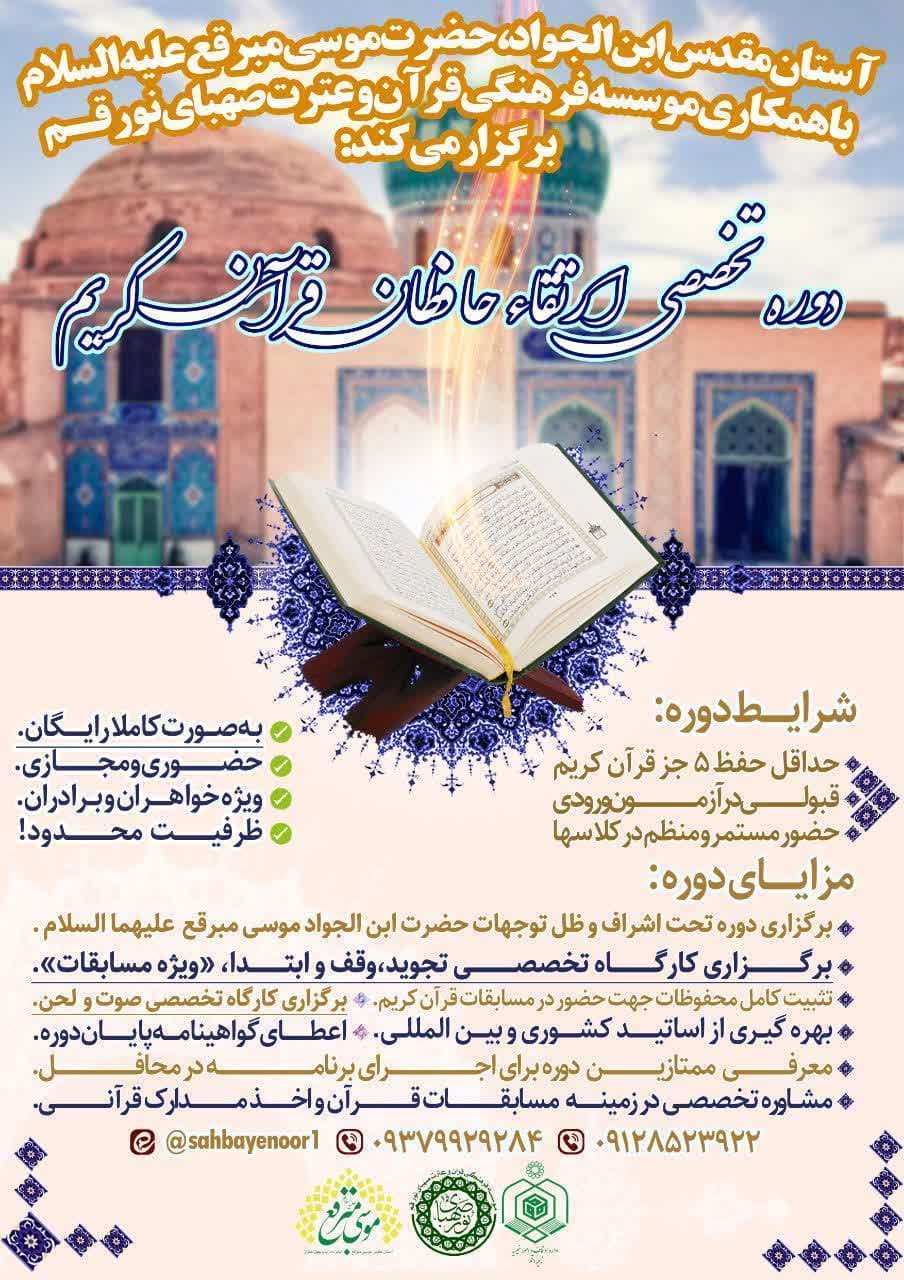 آستان مقدس ابن الجواد، حضرت موسی مبرقع علیه السلام
با همکاری موسسه فرهنگی قرآن و عترت صهبای نور قم
برگزار می کند:
دوره تخصصی ارتقاء حافظان قرآن کریم
شرایط دوره:
حداقل حفظ ۵ جز قرآن کریم
قبولی در آزمون ورودی
حضور مستمر و منظم در کلاسها
به صورت کاملا رایگان.
حضوری و مجازی.
ویژه خواهران و برادران.
ظرفیت محدود!
مزایای دوره:
برگزاری دوره تحت اشراف و ظل توجهات حضرت ابن الجواد موسی مبرقع علیهما السلام.
برگزاری کارگاه تخصصی تجوید، وقف و ابتدا، «ویژه مسابقات».
تثبیت کامل محفوظات جهت حضور در مسابقات قرآن کریم. برگزاری کارگاه تخصصی صوت و لحن.
بهره گیری از اساتید کشوری و بین المللی. اعطای گواهینامه پایان دوره.
معرفی ممتازین دوره برای اجرای برنامه در محافل.
مشاوره تخصصی در زمینه مسابقات قرآن و اخذ مدارک قرآنی.
۰۹۱۲۸۵۲۳۹۲۲ ۰۹۳۷۹۹۲۹۲۸۴ @sahbayenoor1
صهبای نور
موسی مبرقع